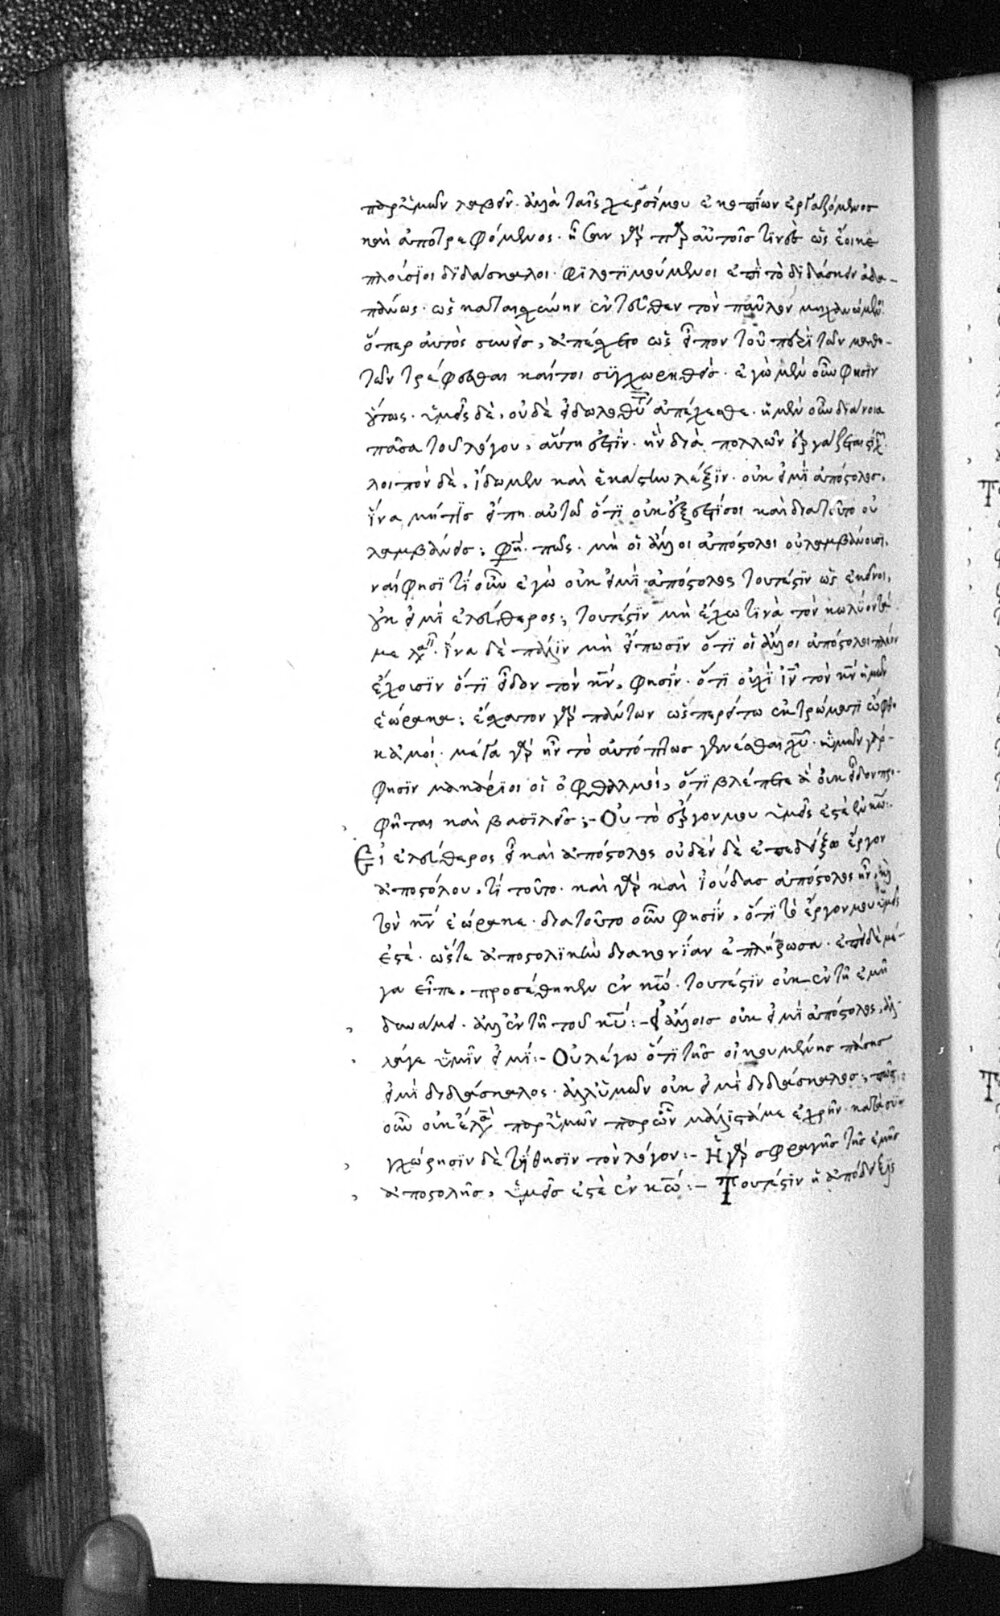 παρ' ὑμῶν λαβεῖν· ἀλλὰ ταῖς χερσί μου ἐκοπίων ἐργαζόμενος
καὶ ἀποτρεφόμενος· ἦσαν γὰρ παρ' αὐτοῖς τινὲς ὡς ἔοικε
πλούσιοι διδάσκαλοι· φιλοτιμούμενοι ἐπὶ τὸ διδάσκειν ἀδα-
πάνως· ὡς καταισχύνειν ἐντεῦθεν τὸν παῦλον μηχανώμενοι·
ὅπερ αὐτὸς συνεὶς, ἀπέσχετο ὡς εἶπον τοῦ παρὰ τῶν μαθη-
τῶν τρέφεσθαι καίτοι συγχωρηθεὶς· ἐγὼ μὲν οὖν φησὶν
οὕτως· ὑμεῖς δὲ, οὐδὲ εἰδωλοθύτων ἀπέχεσθε· ἡ μὲν οὖν διάνοια
πᾶσα τοῦ λόγου, αὕτη ἐστίν· ἣν διὰ πολλῶν ἐργάζεται
λοιπὸν δὲ, ἴδωμεν καὶ ἑκάστην λέξιν· οὐκ εἰμὶ ἀπόστολος,
ἵνα μή τις εἴπη αὐτῶ ὅτι οὐκ ἔξεστί σοι καὶ διατοῦτο οὐ
λαμβάνεις; φησὶ· πῶς· μὴ οἱ ἄλλοι ἀπόστολοι οὐ λαμβάνουσι,
ναί φησι τί οὖν ἐγὼ οὐκ εἰμὶ ἀπόστολος τουτέστιν ὡς ἐκεῖνοι,
οὐκ εἰμὶ ἐλεύθερος; τουτέστιν μὴ ἔχω τινὰ τὸν κωλύοντά
με λαβεῖν· ἵνα δὲ πάλιν μὴ εἴπωσιν ὅτι οἱ ἄλλοι ἀπόστολοι πλέον
ἔχουσιν ὅτι εἶδον τὸν κύριον, φησίν· ὅτι οὐχὶ ἰησοῦν τὸν κύριον ἡμῶν
ἑώρακα; ἔσχατον γὰρ πάντων ὡσπερεὶ τῶ ἐκτρώματι ὤφθη
κἀμοί· μέγα γὰρ ἦν τὸ αὐτόπτας γενέσθαι χριστοῦ· ὑμῶν γάρ
φησιν μακάριοι οἱ ὀφθαλμοί, ὅτι βλέπετε ἃ οὐκ εἶδον προ-
φῆται καὶ βασιλεῖς:- Οὐ τὸ ἔργον μου ὑμεῖς ἐστὲ ἐν κυρίω:
Εἰ ἐλεύθερος εἶ καὶ ἀπόστολος οὐδὲν δὲ ἐπεδείξω ἔργον
ἀποστόλου, τί τοῦτο· καὶ γὰρ καὶ ἰούδας ἀπόστολος ἦν, καὶ
τὸν κύριον ἑώρακε· διατοῦτο οὖν φησίν, ὅτι τὸ ἔργον μου ὑμεῖς
ἐστέ· ὥστε ἀποστολικὴν διακονίαν ἐπλήρωσα· ἐπεὶ δὲ μέ-
γα εἶπε, προσέθηκεν ἐν κυρίω· τουτέστιν οὐκ ἐν τῆ ἐμῆ
δυνάμει· ἀλλ' ἐν τῆ τοῦ κυρίου:- Εἰ ἄλλοις οὐκ εἰμὶ ἀπόστολος, ἀλ-
λάγε ὑμῖν εἰμί:- Οὐ λέγω ὅτι τῆς οἰκουμένης πάσης
εἰμὶ διδάσκαλος· ἀλλ' ὑμῶν οὐκ εἰμὶ διδάσκαλος; πῶς
οὖν οὐκ ἔλαβον παρ' ὑμῶν παρ' ὧν μάλιστά με ἐχρῆν· κατὰ συγ-
χώρησιν δὲ τίθησιν τὸν λόγον:- Ἡ γὰρ σφραγὶς τῆς ἐμῆς
ἀποστολῆς, ὑμεῖς ἐστὲ ἐν κυρίω:- Τουτέστιν ἡ ἀπόδειξις